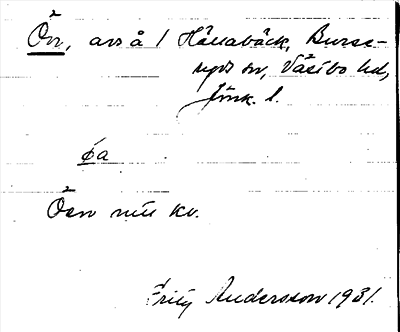 Ön, avs å / Hällabäck, Burse-
ryds sn, Västbo hd,
Jönk. l.
öa
Öen mitt kv.
Fritz Andersson 1931.